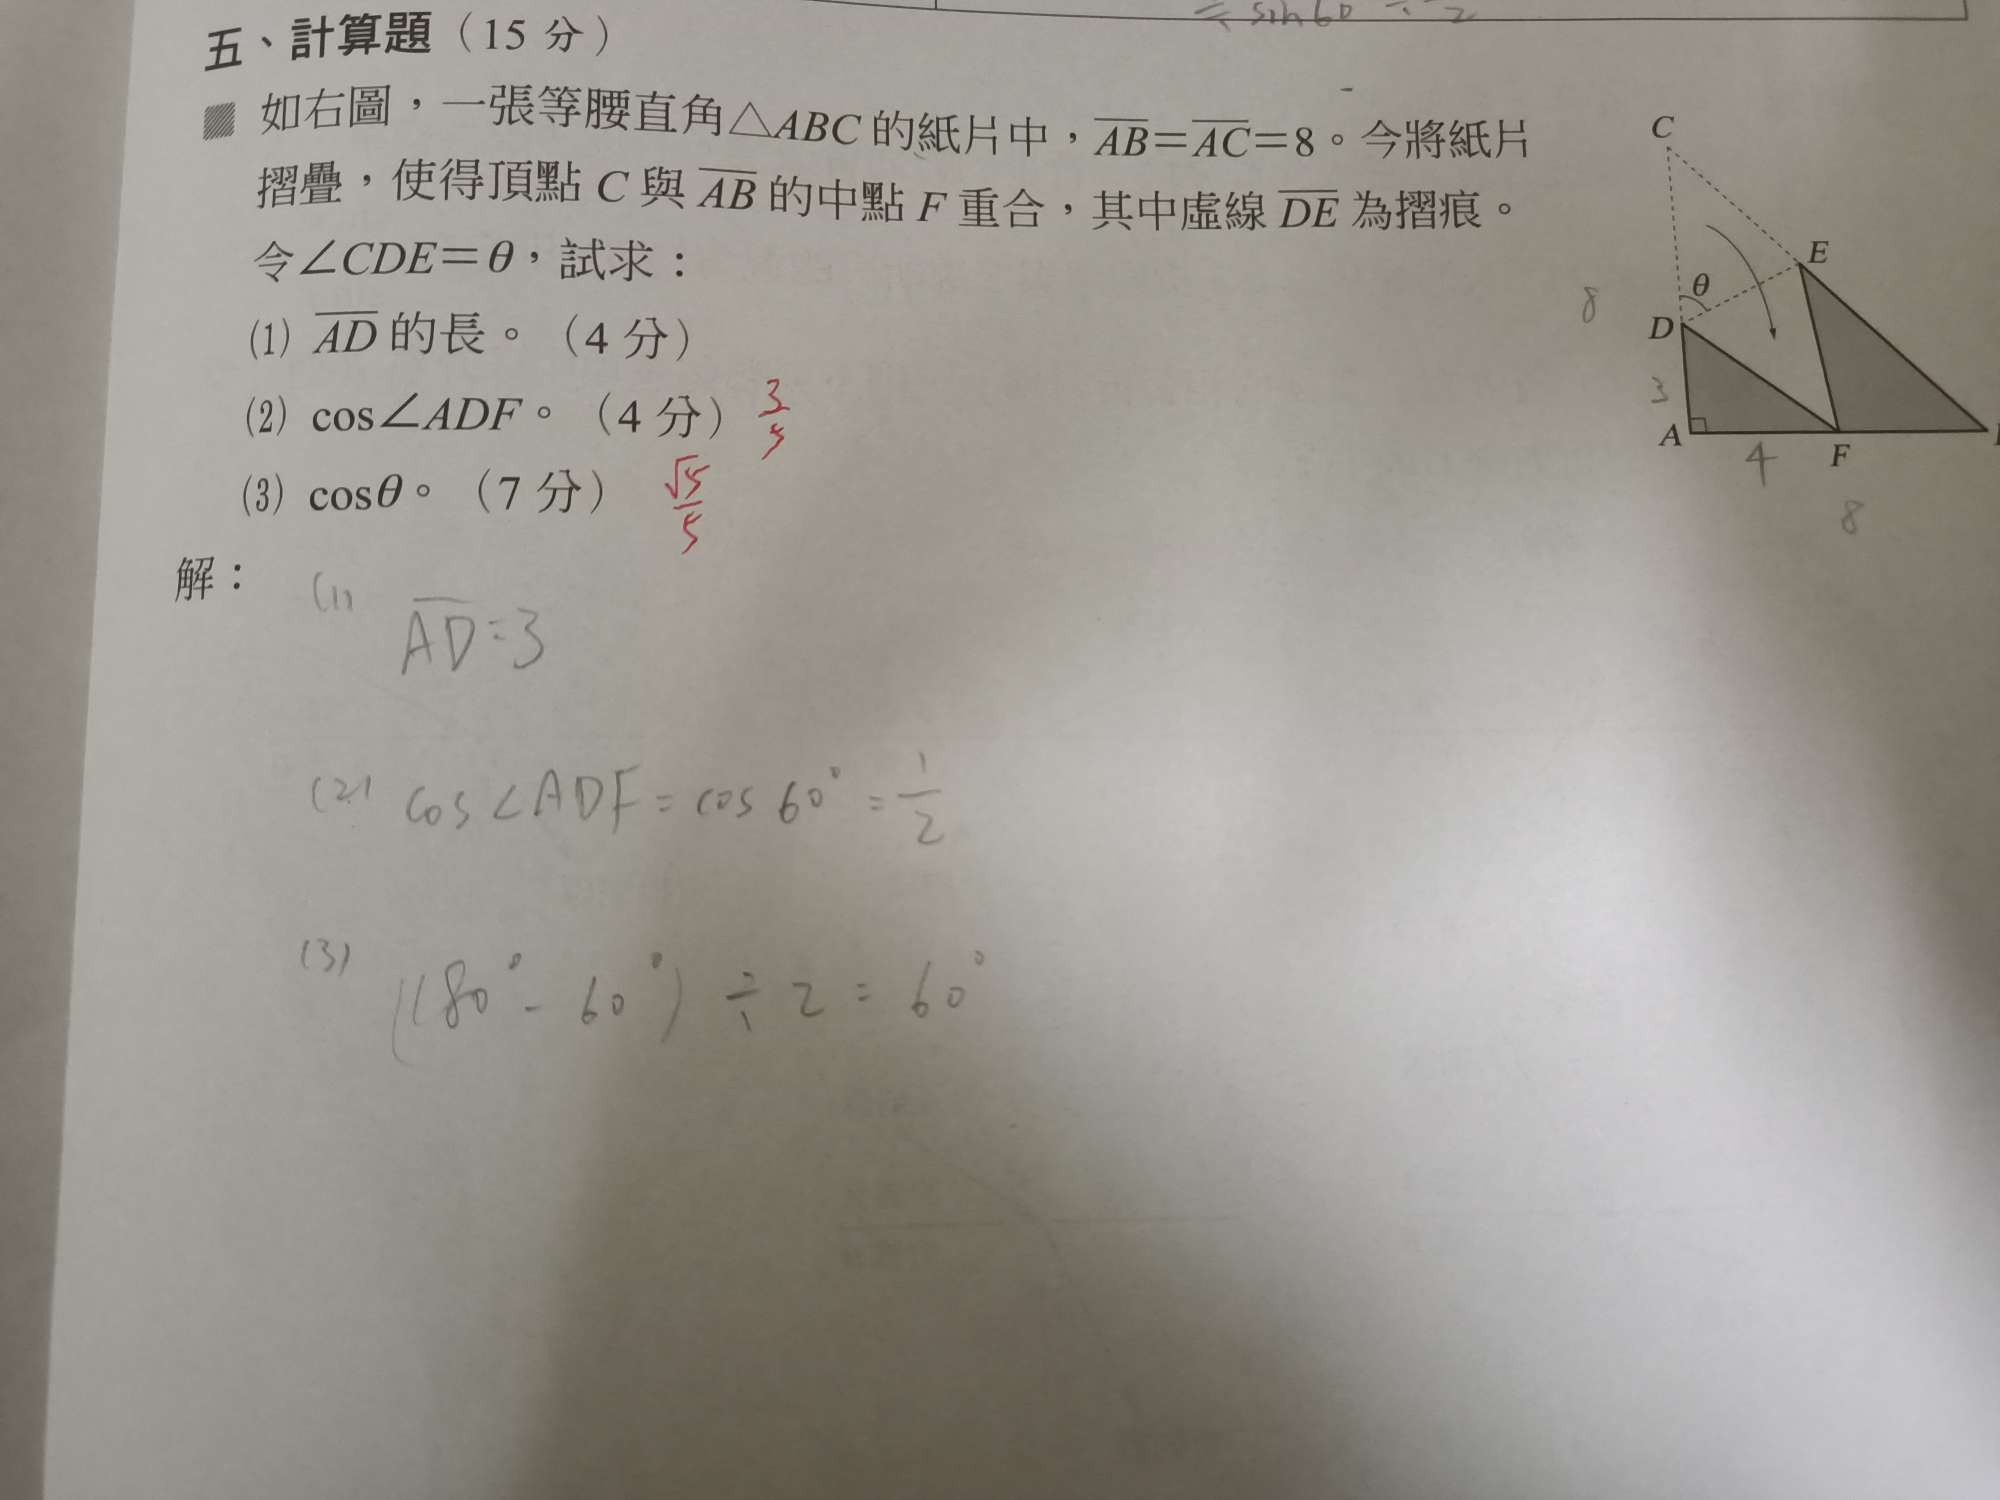 ÷ sin60 ÷ 2
五、計算題（15 分）
如右圖，一張等腰直角△ABC 的紙片中，AB＝AC＝8。今將紙片
摺疊，使得頂點 C 與 AB 的中點 F 重合，其中虛線 DE 為摺痕。
令∠CDE＝θ，試求：
(1) AD 的長。（4 分）
(2) cos∠ADF。（4 分） 3/5
(3) cosθ。（7 分） √5/5
C
E
θ
8
D
3
A
4
F
8
解：
(1) AD=3
(2) cos∠ADF = cos 60° = 1/2
(3) (180° - 60°) ÷ 2 = 60°